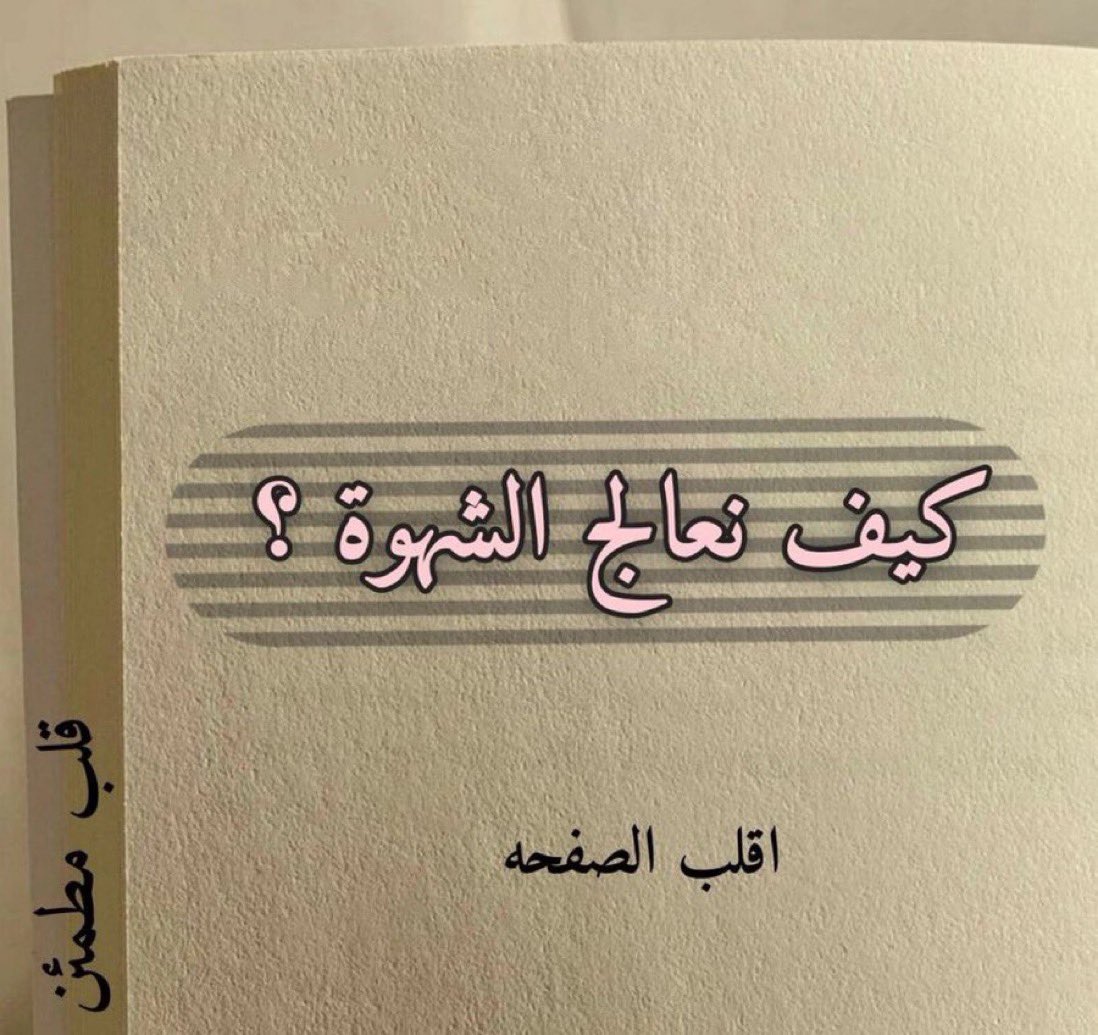 كيف نعالج الشهوة ؟
اقلب الصفحه
قلب مطمئن